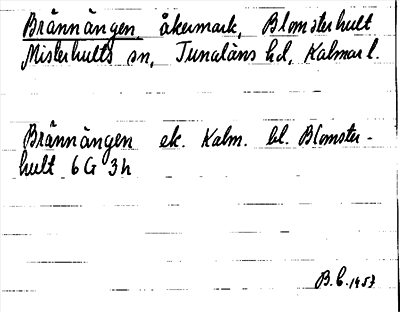 Brännängen, åkermark, Blomsterhult
Misterhults sn, Tunaläns hd, Kalmar l.
Brännängen ek. Kalm. bl. Blomster-
hult 6G 3h
B.C. 1957